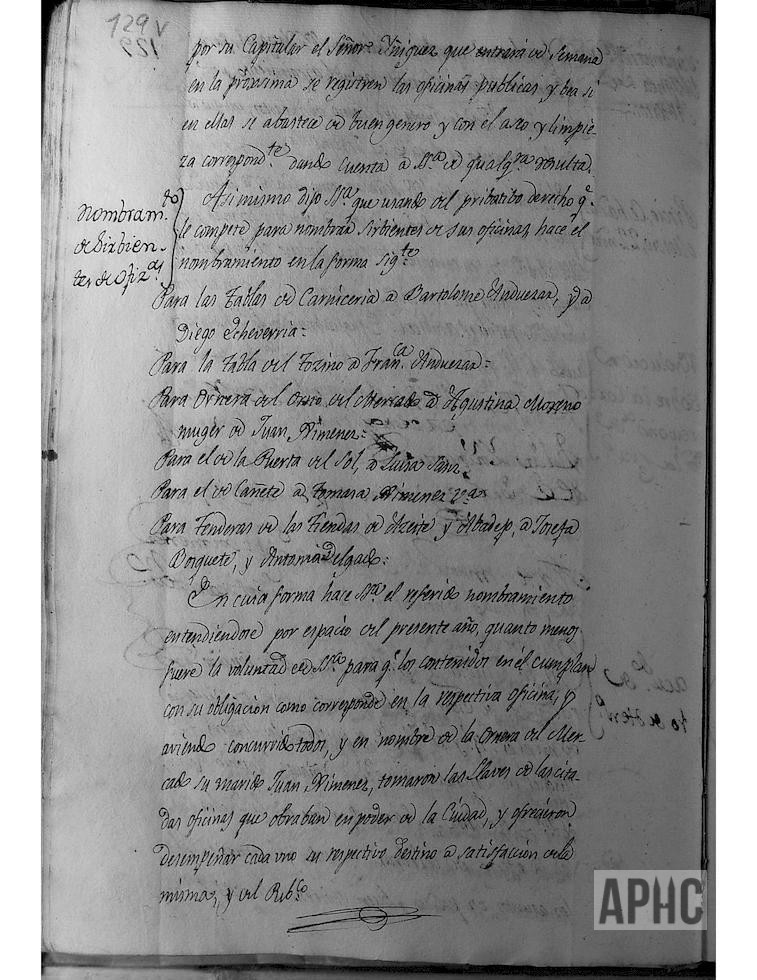 129 v
por su Capitular el Señor Yñiguez que entrará de semana
en la próxima se registren las oficinas publicas y bea si
en ellas se abastece de buen genero y con el aseo y limpie-
za correspond.te dando Cuenta a S.ria de qualq.ra resulta.
Nombram.to
de Sirbien-
tes de Ofiz.as
Asimismo dijo S.ria que usando del pribatibo derecho q.e
le compete para nombrar sirbientes de sus oficinas, hace el
nombramiento en la forma sig.te
Para las Tablas de Carniceria a Bartolome Anduezar, y a
Diego Echeverria:
Para la Tabla del Tozino a Fran.ca Anduezar:
Para Ornera del Orno del Mercado a Agustina Moreno
muger de Juan Ximenez:
Para el de la Puerta del Sol, a Luisa Sanz,
Para el de Cañete a Tomasa Ximenez
Para Tenderas de las Tiendas de Azeite y Abadejo, a Josefa
Bosquete, y Antonia Delgado:
En cuia forma hace S.ria el referido nombramiento
entendiendose por espacio del presente año, quanto menos
fuere la voluntad de S.ria para q.e los contenidos en él cumplan
con su obligacion como corresponde en la respectiva oficina, y
aviendo concurrido todos, y en nombre de la Ornera del Mer-
cado su marido Juan Ximenez, tomaron las Llaves de las cita-
das oficinas que obraban en poder de la Ciudad, y ofrecieron
desempeñar cada uno su respectivo destino a satisfaccion de la
misma, y del Pub.co
APHC